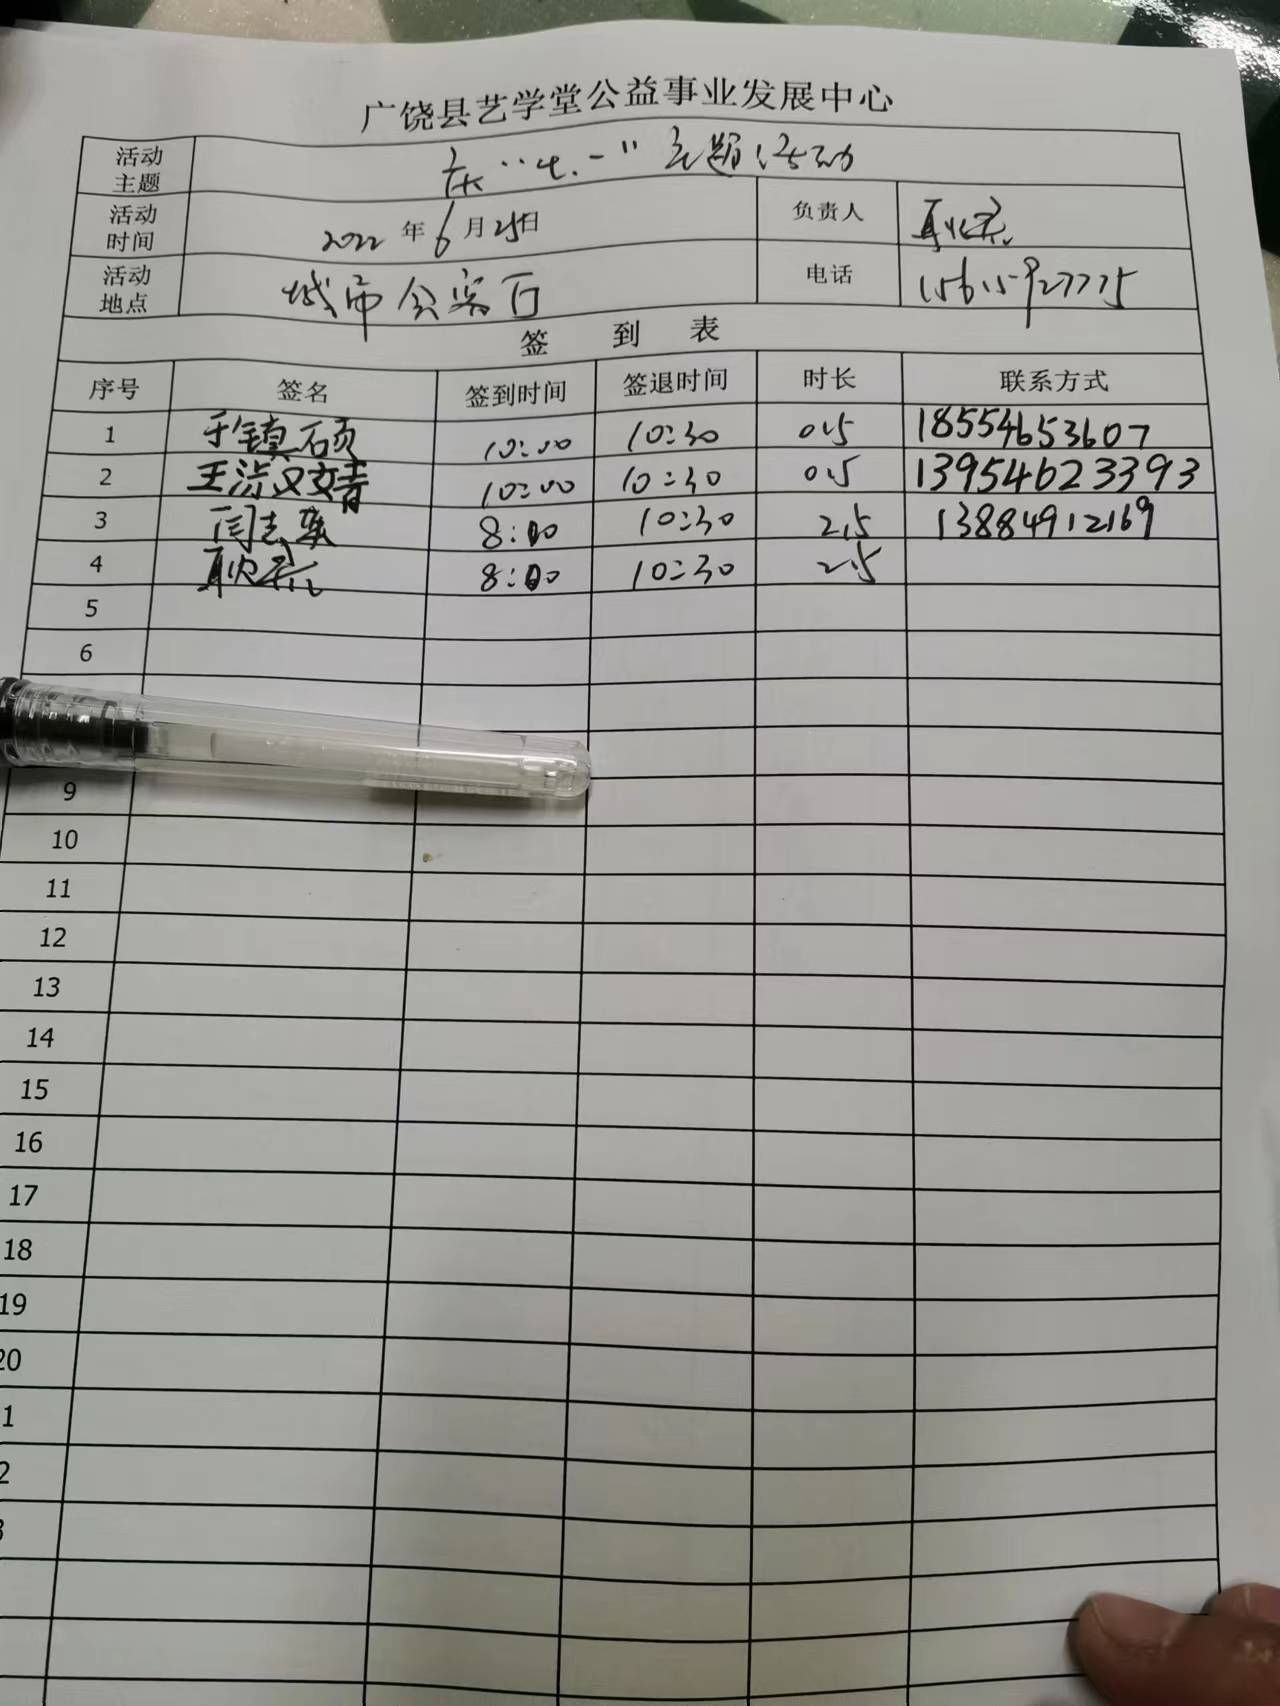 广饶县艺学堂公益事业发展中心
活动主题 庆“七.一”主题活动
活动时间 2022年6月25日 负责人
活动地点 城市公寓 电话
签到表
序号 签名 签到时间 签退时间 时长 联系方式
1 于镇硕 10:00 10:30 0.5 18554653607
2 10:00 10:30 0.5 13954623393
3 8:00 10:30 2.5 13884912169
4 8:00 10:30 2.5
5
6
9
10
11
12
13
14
15
16
17
18
19
20
1
2
3